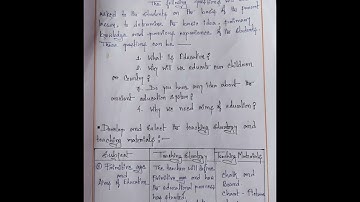 The following questions will be
asked to the students on the basis of the present
lesson, to determine the basic idea, preliminary
knowledge and previous experience of the students.
These questions can be —
1. What is Education?
2. Why will we educate our children
or Country?
3. Do you have any idea about the
ancient education system?
4. Why we need aims of education?
• Develop and Select the teaching strategy and
teaching materials :—
Subject Teaching Strategy Teaching Materials
① Primitive age The teacher will define Chalk and
and Primitive age and how Board
Aims of Education the educational process Chart - Picture
has started.